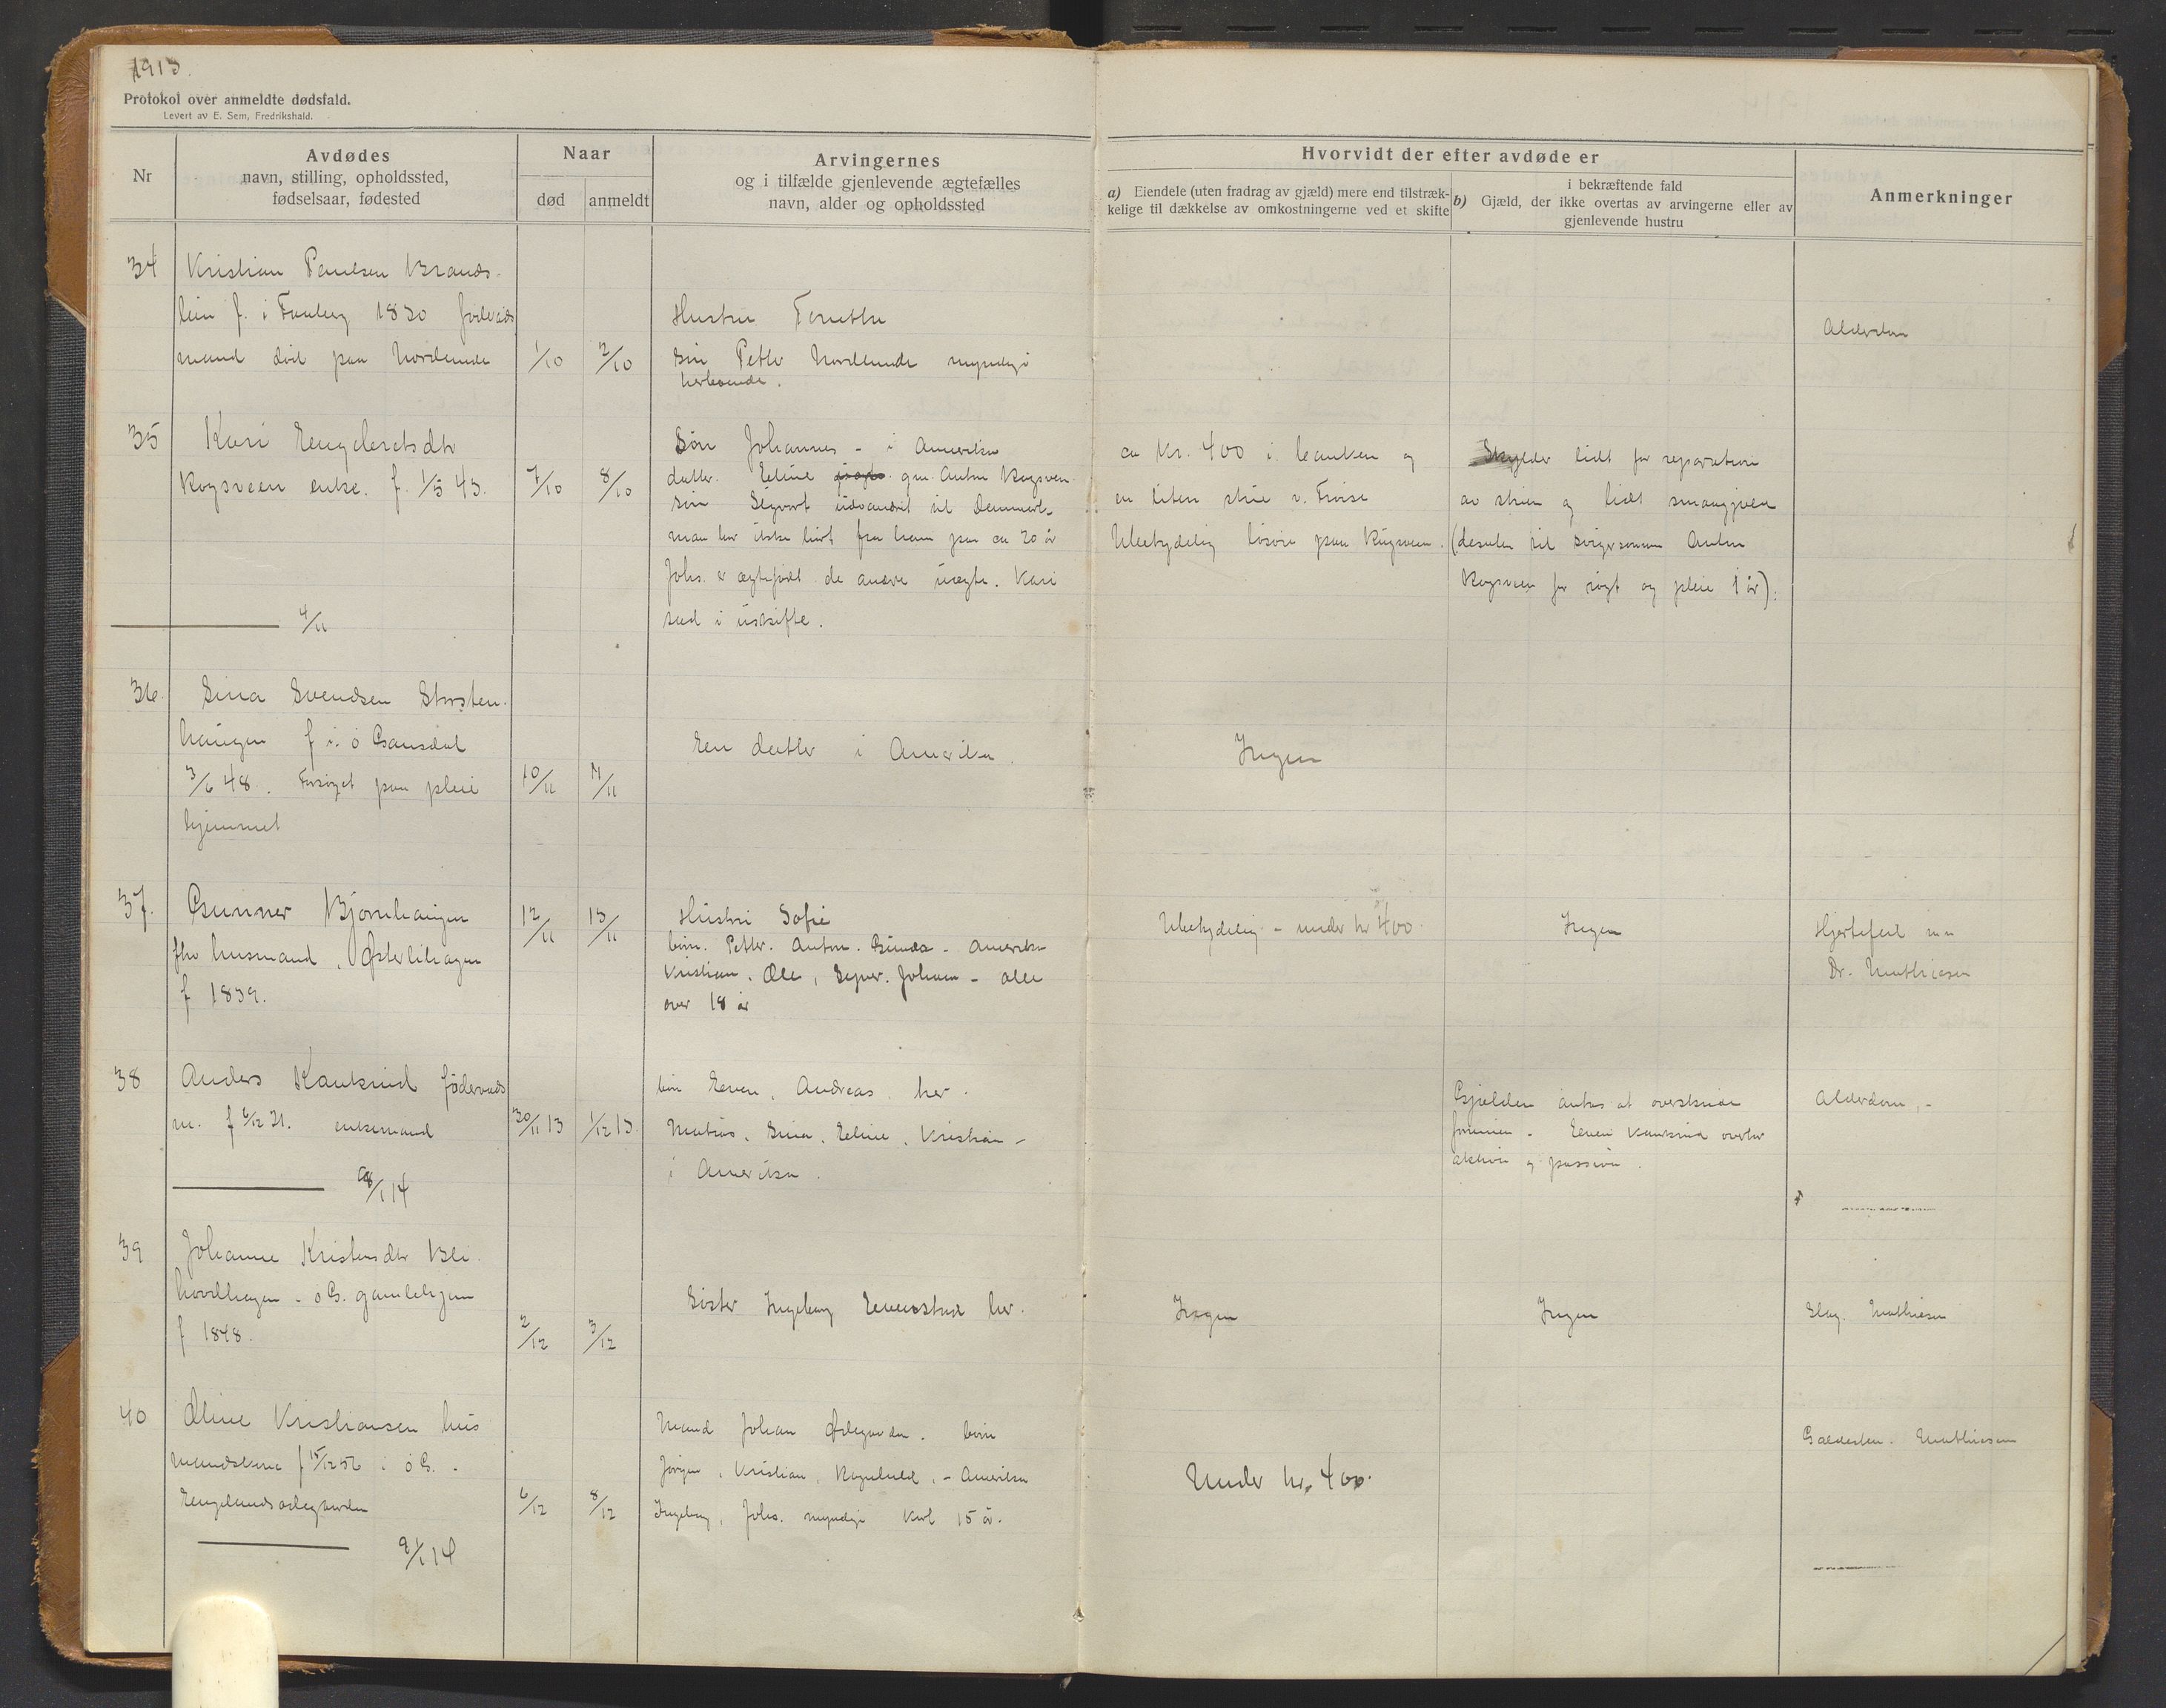 1913.
Protokol over anmeldte dødsfald.
Levert av E. Sem, Fredrikshald.
Nr
Avdødes
navn, stilling, opholdssted,
fødselsaar, fødested
Naar
død
anmeldt
Arvingernes
og i tilfælde gjenlevende ægtefælles
navn, alder og opholdssted
Hvorvidt der efter avdøde er
a) Eiendele (uten fradrag av gjæld) mere end tilstræk-
kelige til dækkelse av omkostningerne ved et skifte
i bekræftende fald
b) Gjæld, der ikke overtas av arvingerne eller av
gjenlevende hustru
Anmerkninger
34
Kristian Paulsen Brands-
lien f. i Faaberg 1830 foderaads
mand død paa Nordlunde
1/10
2/10
Hustru
Søn Petter Nordlunde myndig
herboende.
Alderdom
35
Kari Engebretsdtr
Rogsveen enke. f. 1/5 43.
7/10
8/10
Søn Johannes - i Amerika
datter Eline gm. Anton Rogsveen
søn Sigvart utvandret til Danmark
man har ikke hørt fra ham paa ca 20 år
Johs. er ægtefødt de andre uægte. Kari
sad i uskifte.
ca kr. 400 i banken og
en liten stue v.
Ubetydelig løsøre paa Rogsveen.
Skylder lidt for reparation
av stuen og lidt smaagjæld
(desuten til svigersønnen Anton
Rogsveen for røgt og pleie 1 år).
4/11
36.
Sina Svendsen Storsten-
haugen f. i ø Gausdal
3/6 48. Forsørget paa pleie
hjemmet
10/11
11/11
En datter i Amerika.
Ingen
37.
Gunner Bjørnhaugen
fhv husmand, Østerlihagen
f 1839.
12/11
13/11
Hustru Sofie
børn. Petter. Anton. - Amerika
Kristian. Ole, Johan - alle
over 18 år
Ubetydelig - under kr 400
Ingen
Hjertefeil
Dr. Mathiesen
38
Anders Kankrud føderaads
m. f 6/12 31. enkemand
30/11 13
1/12 13.
børn Even, Andreas her.
Matias, Sina, Eline, Kristian -
i Amerika.
Gjælden antas at overskride
formuen - Even Kankrud overtar
aktiva og passiva.
Alderdom, -
8/1 14
39
Johanne Kristensdtr Bli-
hovdhagen - ø G. gamlehjem
f 1848.
2/12
3/12
Søster Ingeborg Evenstad her.
Ingen
Ingen
Slag. Mathiesen
40
Oline Kristiansen hus
mandskone f 15/12 56 i ø G. -
Engelundsødegaarden
6/12
8/12
Mand Johan Ødegaarden. børn
Jørgen, Kristian, Ragnhild, - Amerika
Ingeborg, Johs. myndige Karl 15 år.
Under kr. 400.
Galdesten. Mathiesen
9/1 14